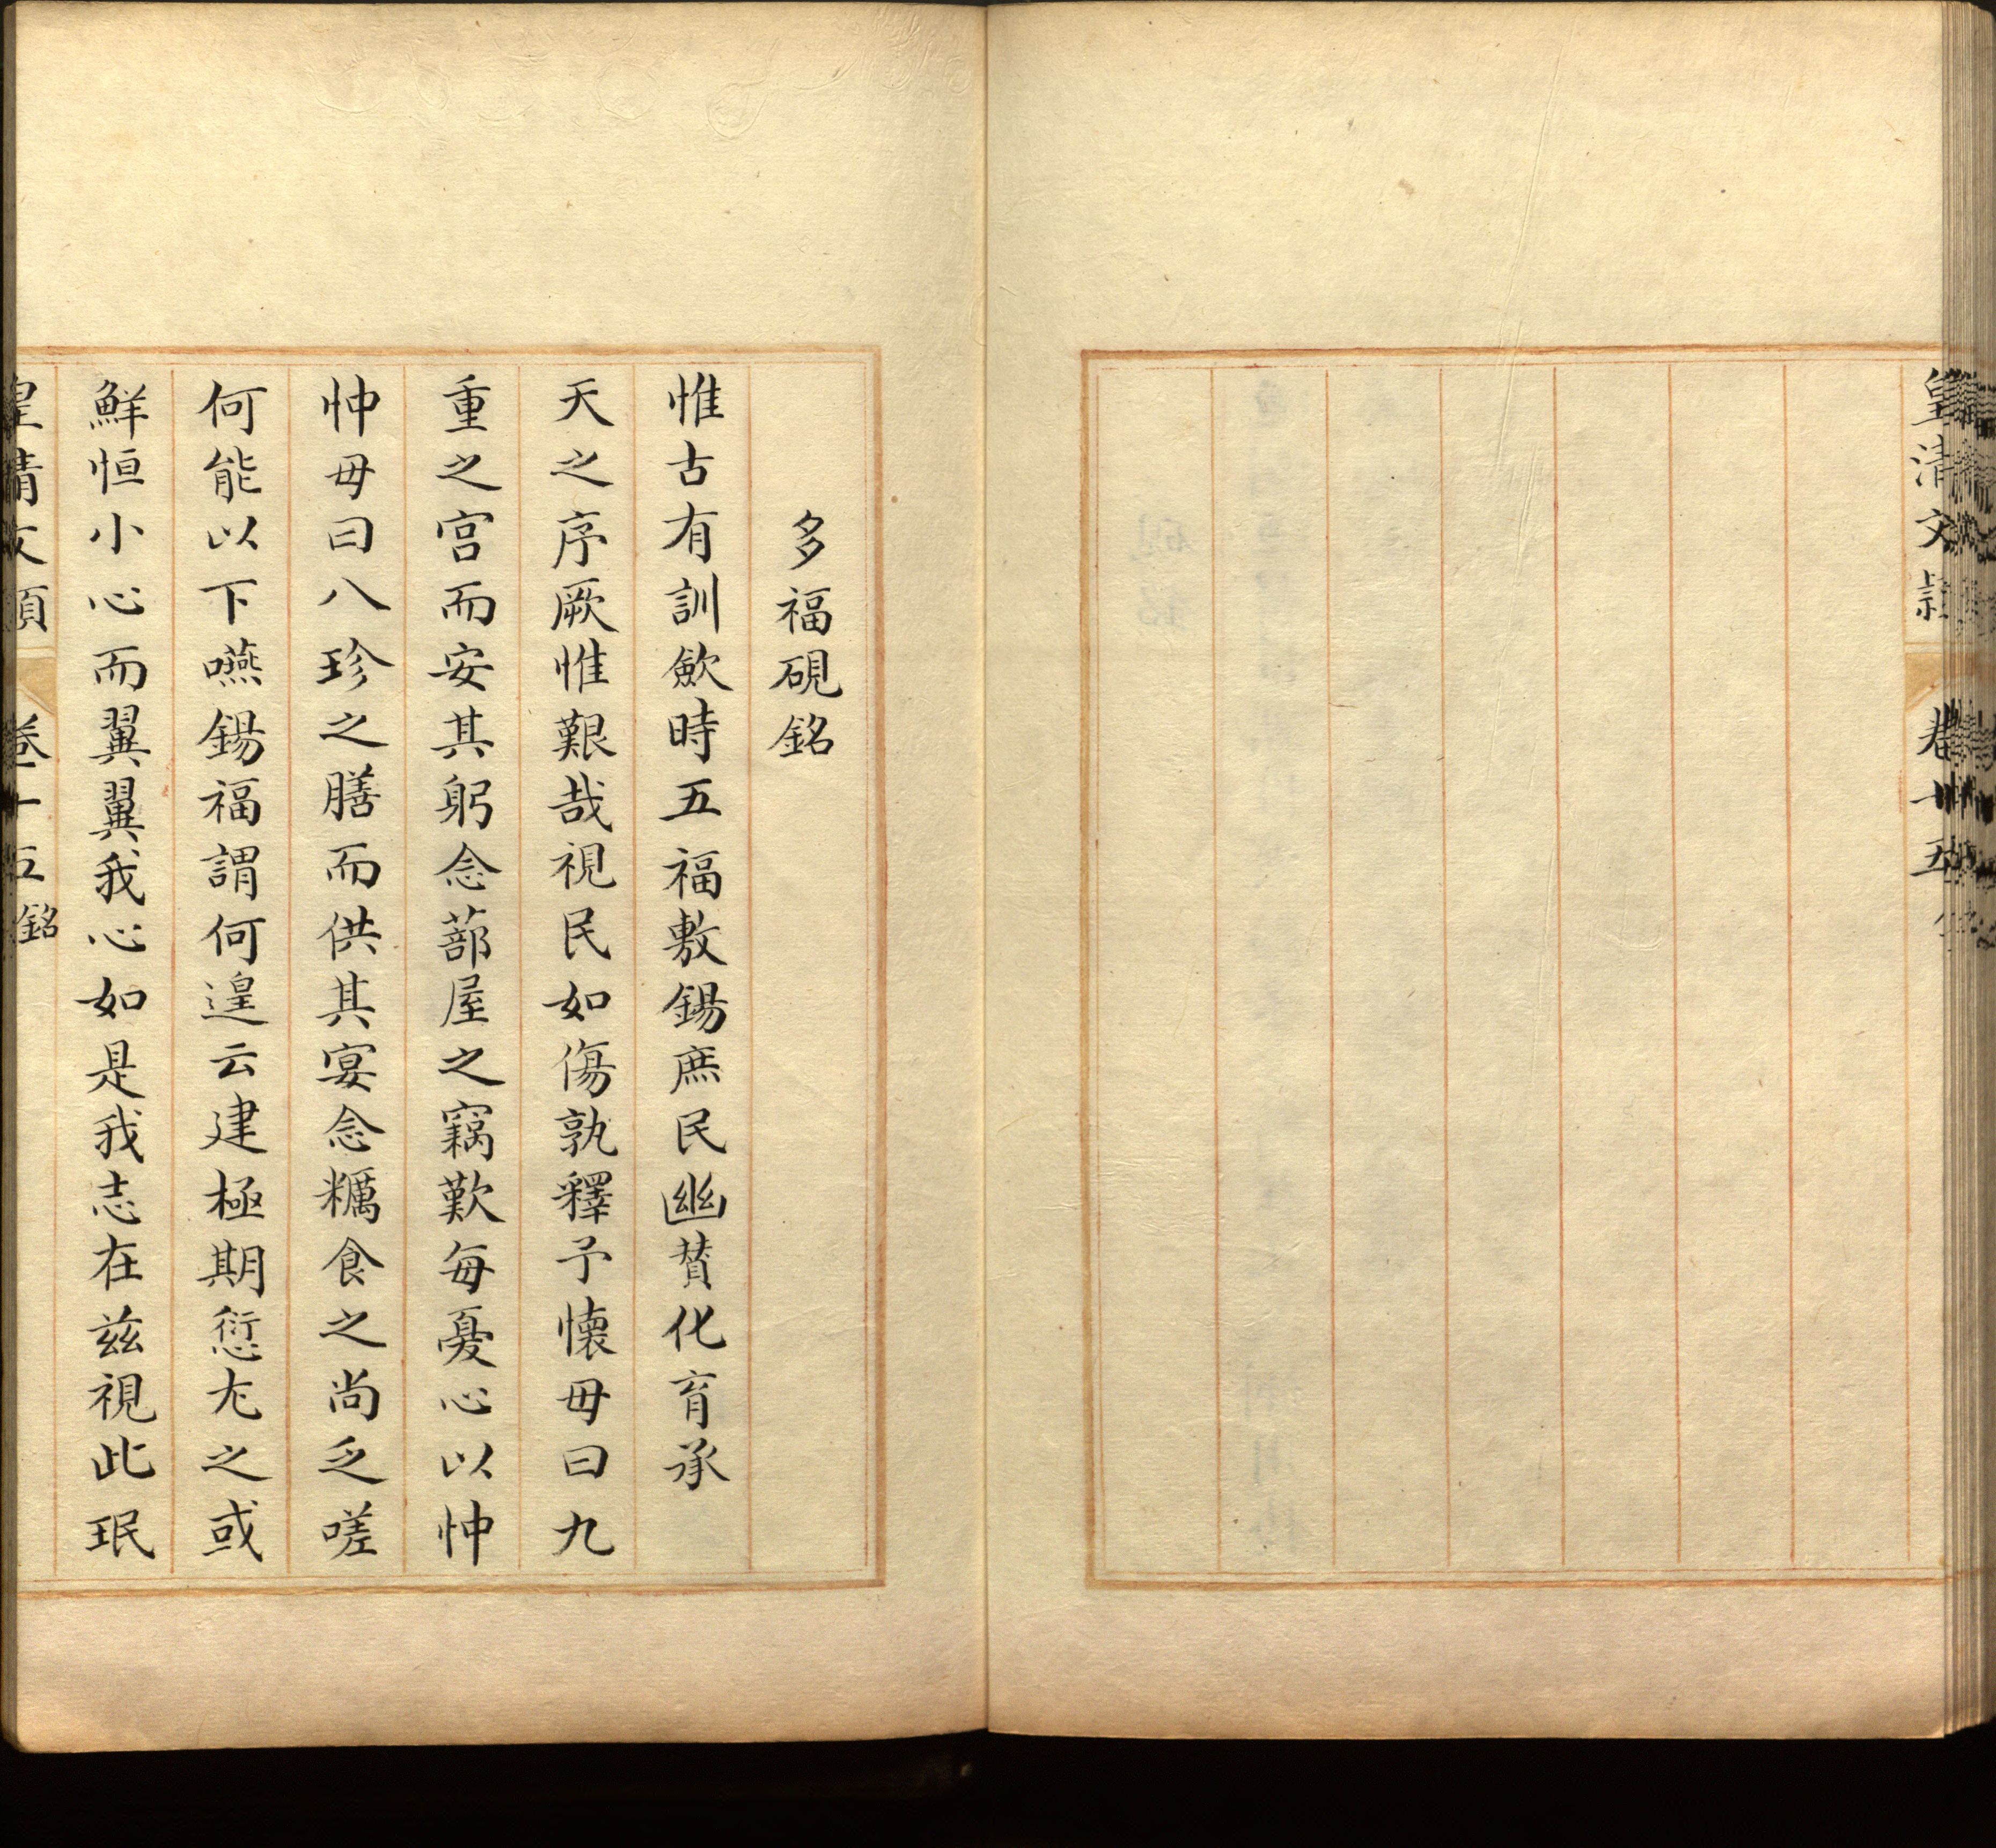 皇清文穎
卷十五
多福硯銘
惟古有訓歛時五福敷錫庶民幽賛化育承
天之序厥惟艱哉視民如傷孰釋予懐毋曰九
重之宫而安其躬念蔀屋之竊歎每憂心以忡
忡毋曰八珍之膳而供其宴念糲食之尚乏嗟
何能以下嚥錫福謂何遑云建極期愆尤之或
鮮恒小心而翼翼我心如是我志在兹視此珉
皇清文穎
卷十五 銘